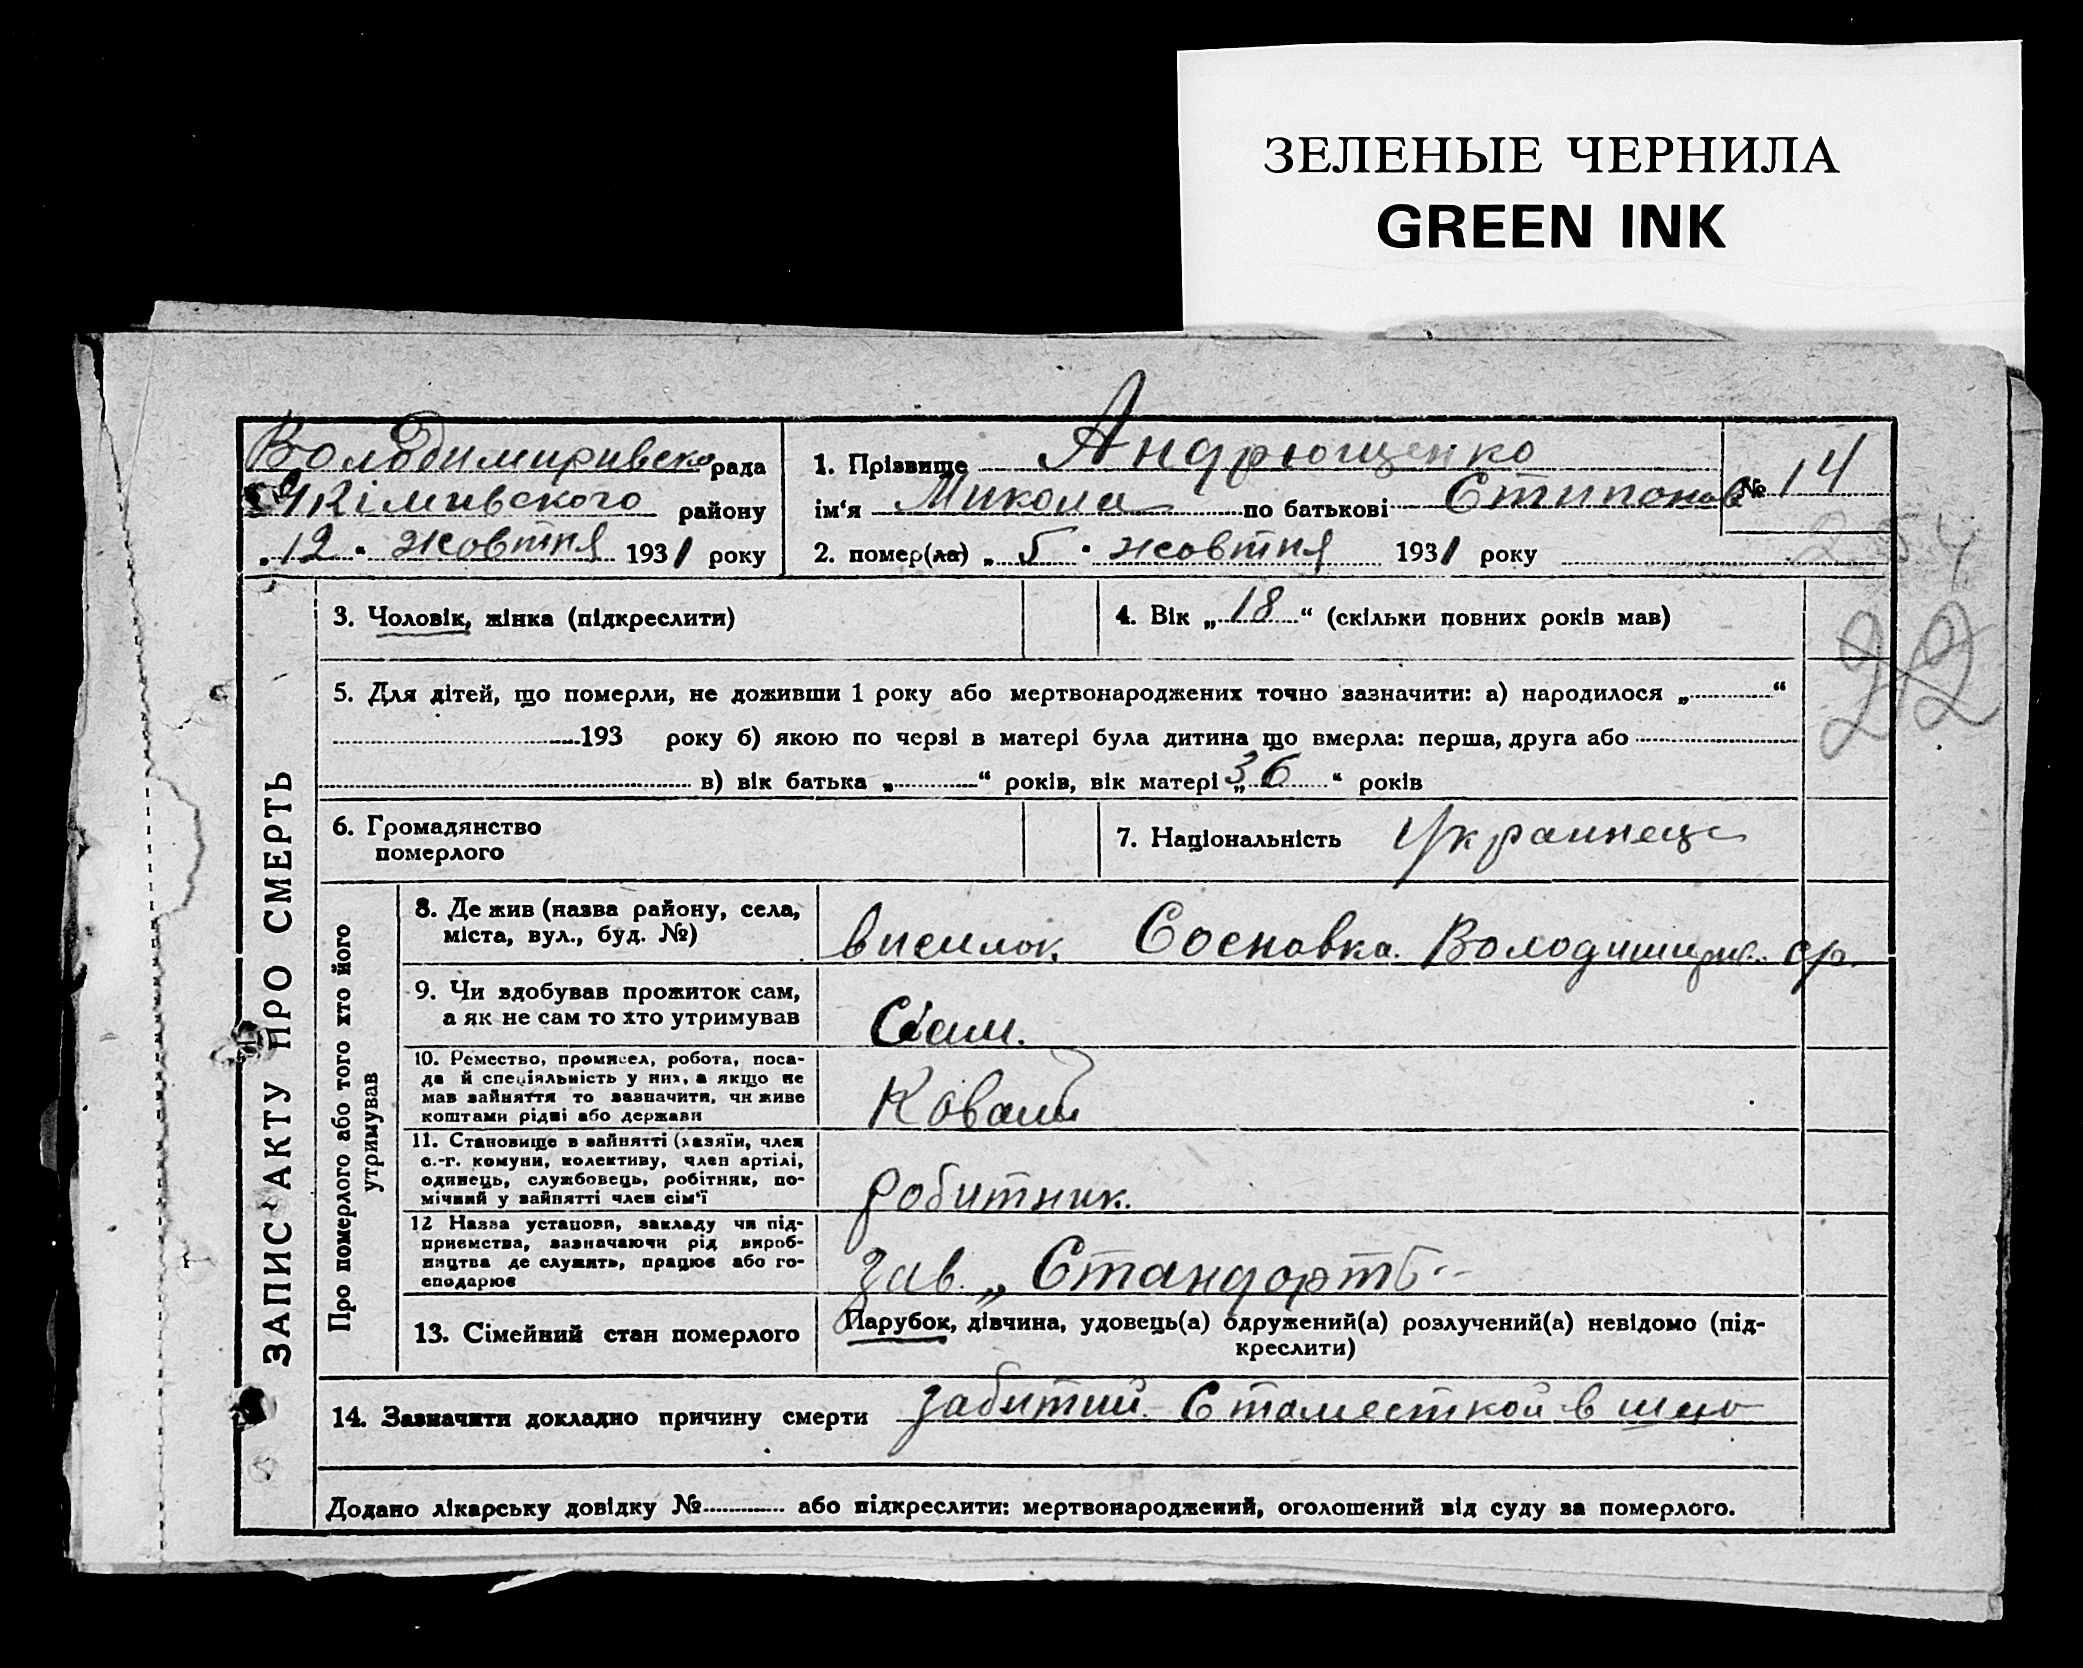 ЗЕЛЕНЫЕ ЧЕРНИЛА
GREEN INK
Володимиривска рада
района району
„12“ жовтня 1931 року
1. Прізвище Андрющенко
ім‘я Микола по батькові Стипанов
№ 14
2. помер(ла) „5“ жовтня 1931 року
254
22
3. Чоловік, жінка (підкреслити)
4. Вік „18“ (скільки повних років мав)
5. Для дітей, що померли, не доживши 1 року або мертвонароджених точно зазначити: а) народилося „ “
193 року б) якою по черзі в матері була дитина що вмерла: перша, друга або
в) вік батька „ “ років, вік матері „36“ років
6. Громадянство
померлого
7. Національність Украинець
ЗАПИС АКТУ ПРО СМЕРТЬ
Про померлого або того хто його
утримував
8. Де жив (назва району, села,
міста, вул., буд. №)
висилок Сосновка. Володимирив. ср.
9. Чи здобував прожиток сам,
а як не сам то хто утримував
Сам.
10. Ремество, промисел, робота, поса-
да й спеціяльність у них, а якщо не
мав зайняття то зазначити, чи живе
коштами рідні або держави
Коваль
11. Становище в зайнятті (хазяїн, член
с.-г. комуни, колективу, член артілі,
одинець, службовець, робітник, по-
мічний у зайнятті член сім‘ї
робитник.
12 Назва установи, закладу чи під-
приємства, зазначаючи рід вироб-
ництва де служить, працює або го-
сподарює
Зав. „Стандорть“
13. Сімейний стан померлого
Парубок, дівчина, удовець(а) одружений(а) розлучений(а) невідомо (під-
креслити)
14. Зазначити докладно причину смерти забитий Стаместкой в шею
Додано лікарську довідку № або підкреслити: мертвонароджений, оголошений від суду за померлого.